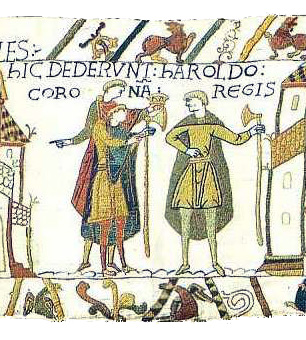 LES:
hIC DEDERVNT: hAROLDO:
CORO NA: REGIS